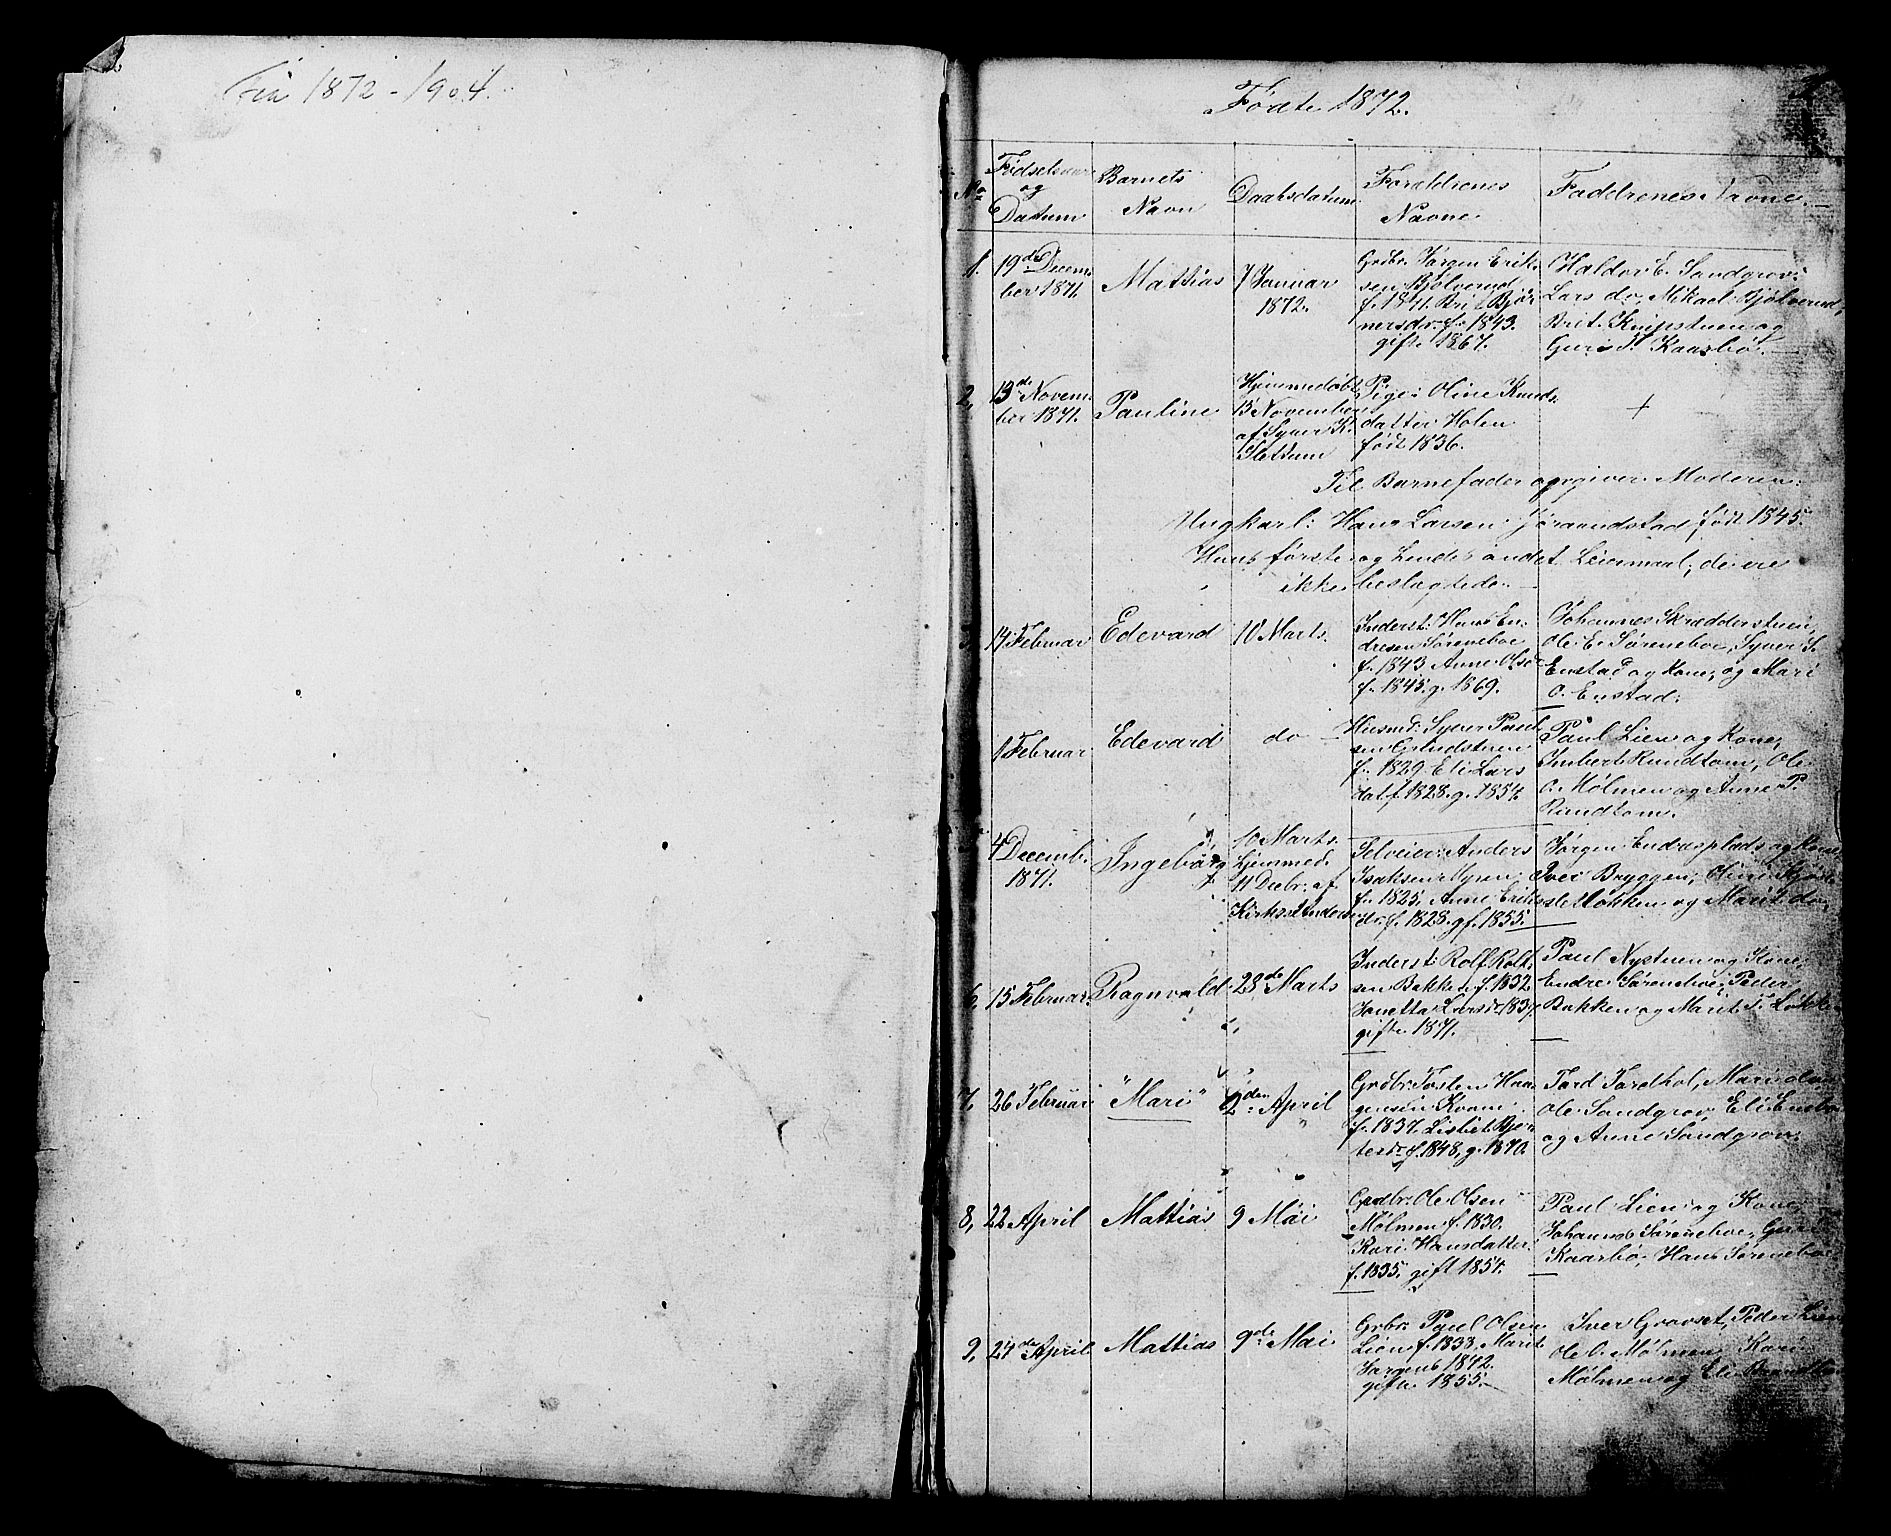 Fra 1872-1904.
Födte 1872.
No
Födselsaar
og
Datum
Barnets
Navn
Daabsdatum
Forældrenes
Navne
Faddrenes Navne
1. 19de Decem-
ber 1871.
Mattias
7 Januar
1872.
Grdbr: Jörgen Erik-
sen Bjölverud
f. 1841. Brit Björ
nersdr. f. 1843.
gift 1867.
Haldor E. Sandgrov:
Lars do, Mikael Bjölverud,
Brit Knipstuen og
Guri T. Kaarbö.
2, 13de Novem-
ber 1871.
Pauline
Hjemmedöbt
13 November
af Syver K.
Slettum
Pige: Oline Knuds
datter Holen
födt 1836.
+
Til Barnefader opgiver Moderen:
Ungkarl: Hans Larsen Joramdstad, födt 1845.
Hans förste og hendes andet Leiermaal, de ere
ikke beslægtede.
3, 14 Februar
Edevard
10 Marts.
Inderst: Hans En-
dresen Söreneboe
f. 1843 Anne Olsdr
f. 1845. g. 1869.
Johannes Skrædderstuen,
Ole E. Söreneboe, Syver S.
Enstad og Kone, og Mari
O. Enstad.
1 Februar
Edevard
do
Husmd: Syver Paul
sen Grindstuen
f. 1829 Eli Lars
dat f. 1828. g. 1854.
Paul Lien og Kone,
Embert Rundtom, Ole
O. Mölmen og Anne P.
Rundtom.
4 Decemb.
1871.
Ingeborg
10 Marts.
hjemmed.
11 Decbr. af
Kirkes
Selveier: Anders
Isaksen Myren
f. 1825. Anne Eriks
dr. f. 1828. gf. 1855.
Jörgen Endresplads og Kone
Iver Bryggen, Oline
slettokken og Marit do,
6, 15 Februar.
Ragnvald
28de Marts
Inderst: Rolf Rolf-
sen Bakken f. 1832.
Janetta Larsdr 1837.
gifte 1871.
Paul Nystuen og Kone,
Endre Söreneboe, Peder
Bakken og Marit T. Lökke
7, 26 Februar
"Mari"
2den April
Grdbr: Tosten Haa-
gensen Kvam
f. 1837. Lisbet Bjor
tersdr f. 1848, g. 1870.
Tord Tordhol, Mari
Ole Sandgrov, Eli Ensbo
og Anne Sandgrov.
8, 22 April
Mattias
9 Mai
Grdbr: Ole Olsen
Mölmen f. 1830.
Kari Hansdatter
f. 1835. gift 1854.
Paul Lien og Kone
Johannes Söreneboe, Guri
Kaarbö, Hans Söreneboe
9, 24de April
Mattias
9de Mai
Grbr: Paul Olsen
Lien f. 1833, Marit
Jörgens 1842.
gifte 1855.
Iver Gravset, Peder Lien
Ole O. Mölmen, Kari
Mölmen og Eli